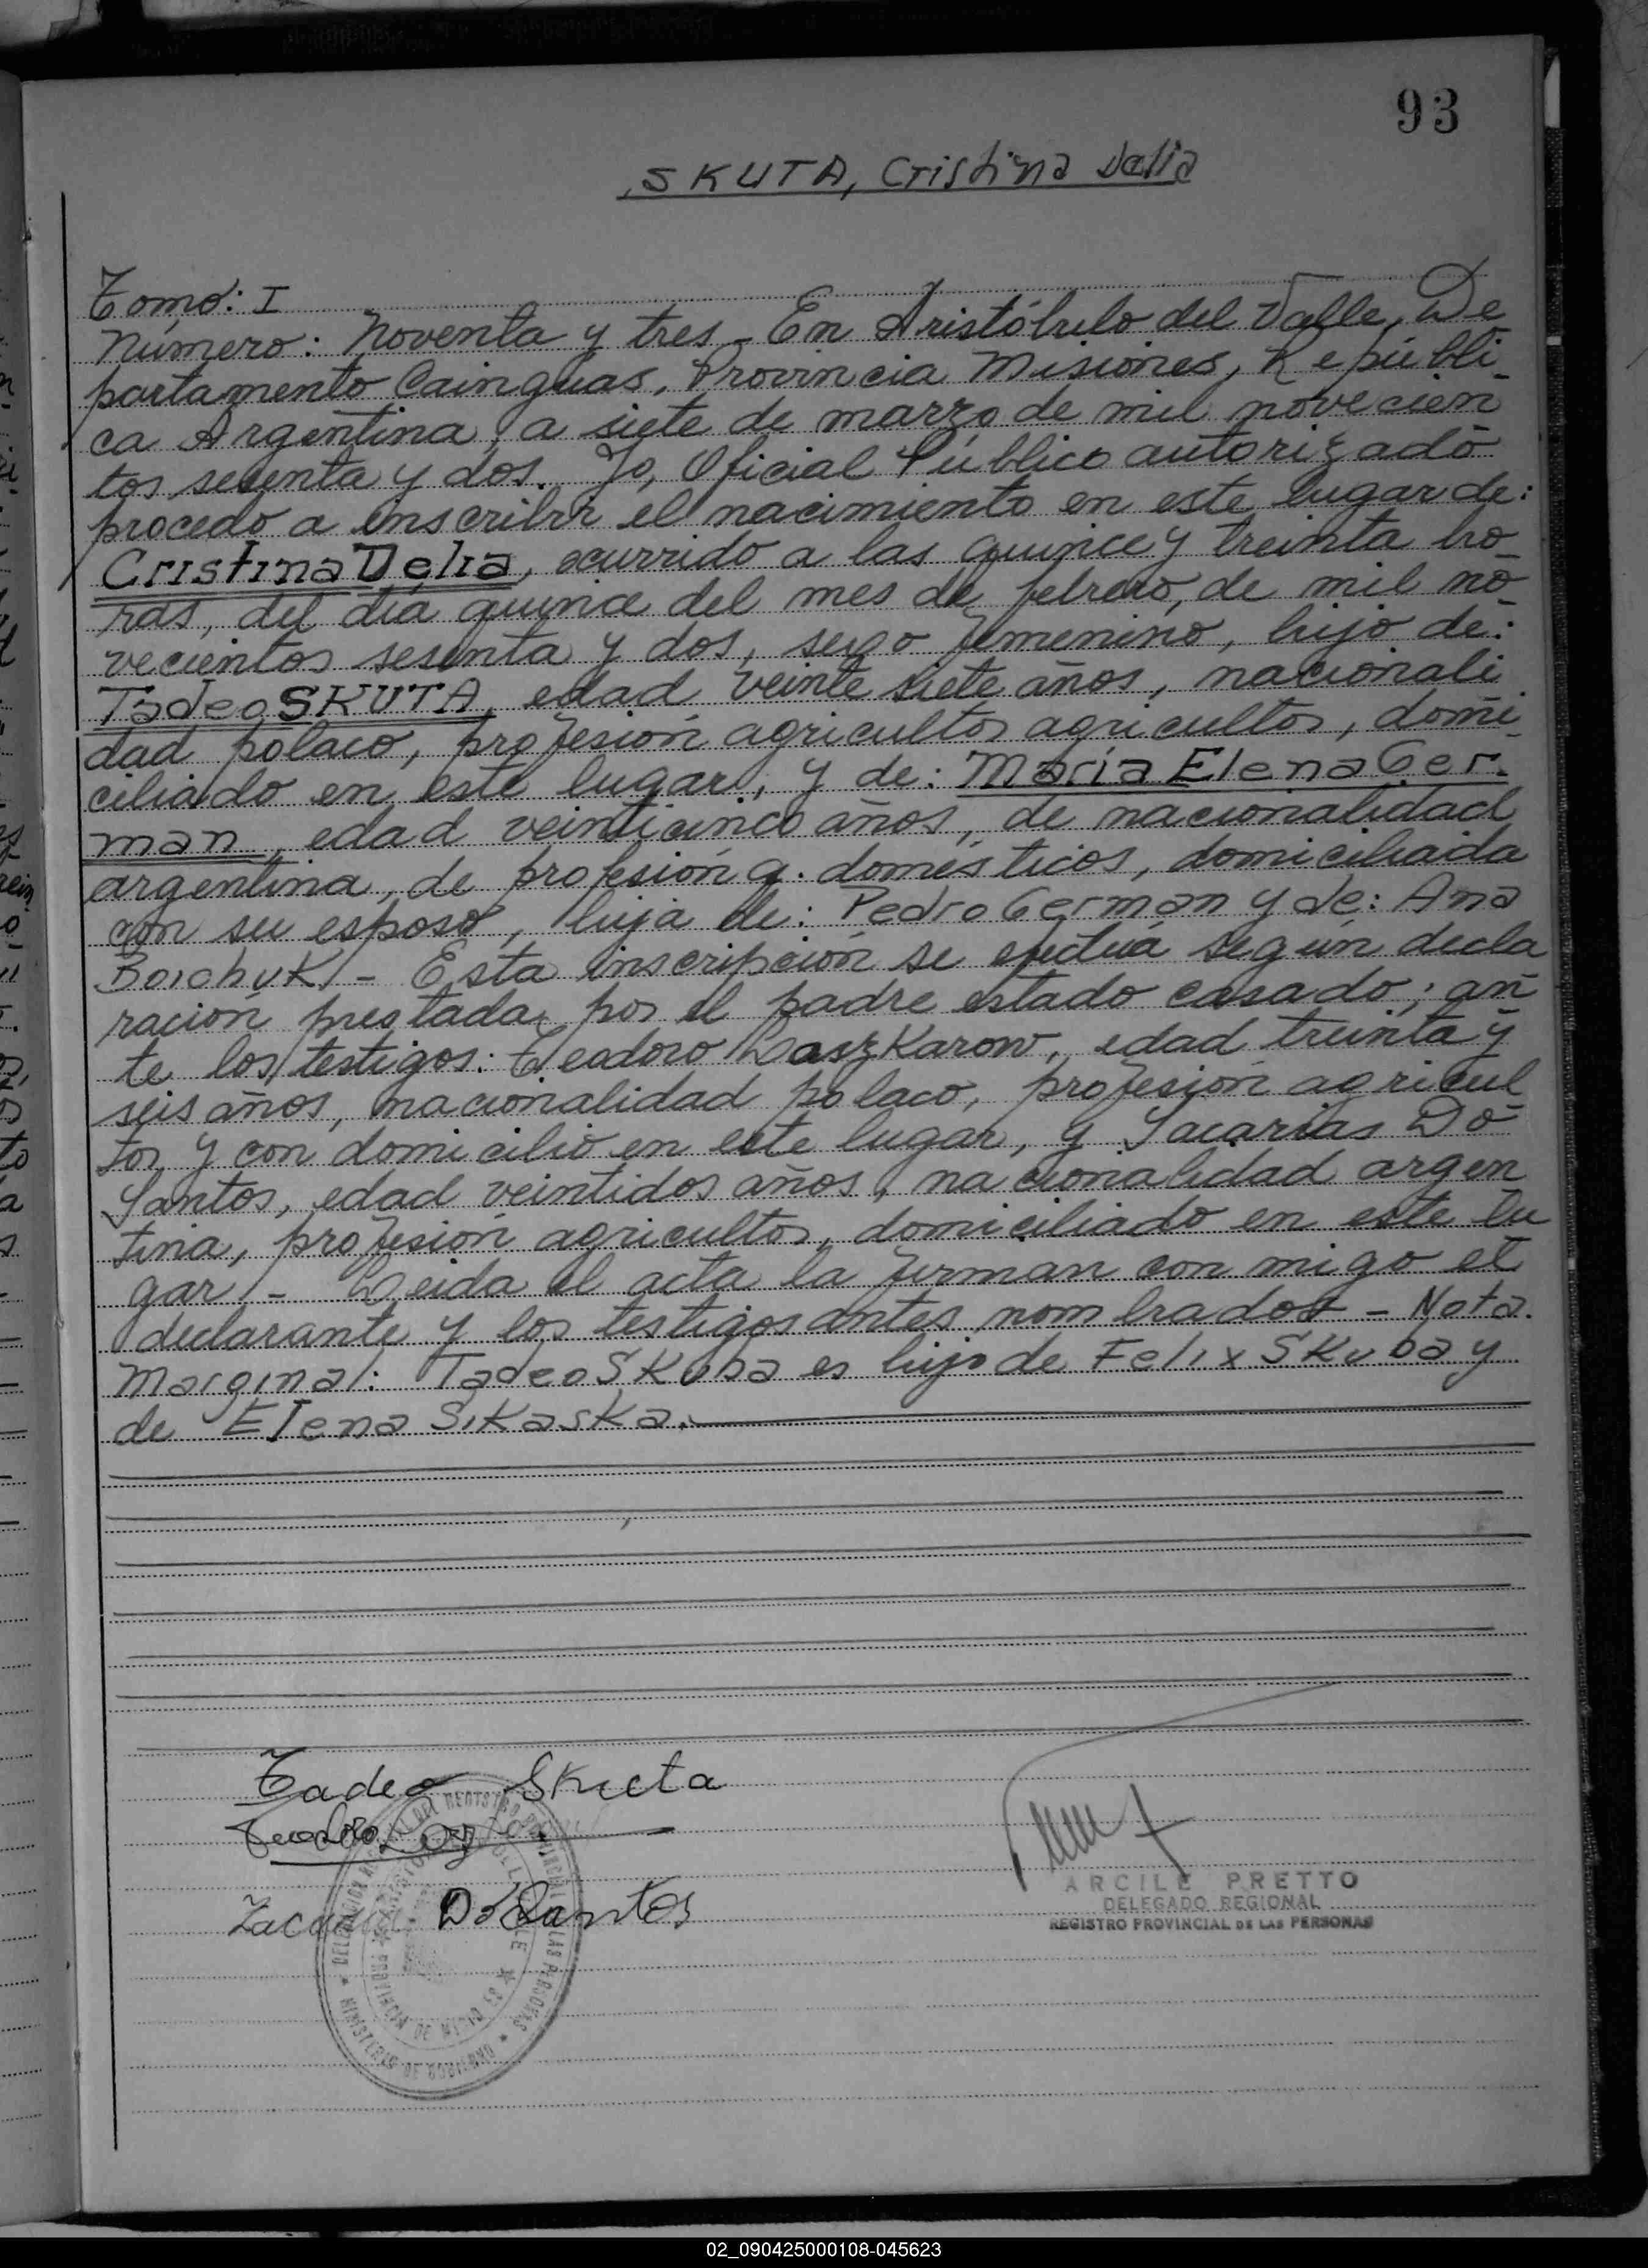 93
SKUTA, Cristina Delia
Tomo: I
Número: Noventa y tres - En Aristóbulo del Valle, De
partamento Cainguas, Provincia Misiones, Repúbli_
ca Argentina, a siete de marzo de mil novecien
tos sesenta y dos. Yo, Oficial Público autorizado
procedo a inscribir el nacimiento en este lugar de:
Cristina Delia, ocurrido a las quince y treinta ho_
ras, del día quince del mes de febrero, de mil no_
vecientos sesenta y dos, sexo femenino, hijo de:
Tadeo SKUTA, edad veinte siete años, nacionali
dad polaco, profesión agricultor agricultor, domi_
ciliado en este lugar, y de: María Elena Ger_
man, edad veinticinco años, de nacionalidad
argentina, de profesión q. domésticos, domiciliada
con su esposo, hija de: Pedro German y de: Ana
Boichuk. - Esta inscripción se efectúa según decla
ración prestada por el padre estado casado; an
te los testigos: Teodoro Laszkarow, edad treinta y
seis años, nacionalidad polaco, profesión agricul
tor y con domicilio en este lugar, y Sacarías Do
Santos, edad veintidos años, nacionalidad argen
tina, profesión agricultor, domiciliado en este lu
gar. - Leida el acta la firman con migo el
declarante y los testigos antes nombrados - Nota
Marginal: Tadeo Skuba es hijo de Felix Skuba y
de Elena Sikaska.
Tadeo Skuta
Teodoro
Do Santos
ARCILE PRETTO
DELEGADO REGIONAL
REGISTRO PROVINCIAL DE LAS PERSONAS
02_090425000108-045623